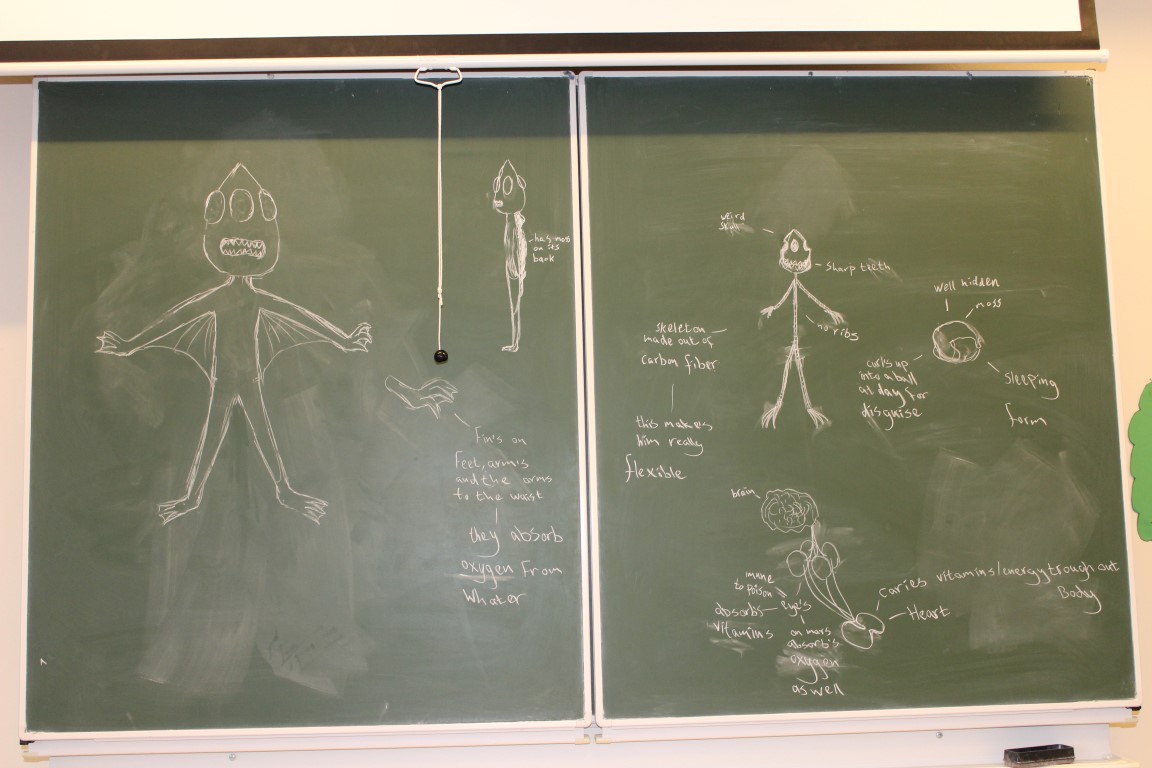 has moss
on its
back
Fin's on
Feet, arm's
and the arms
to the waist
they absorb
oxygen From
Whater
weird
skull
sharp teeth
no ribs
skeleton
made out of
carbon fiber
this makes
him really
flexible
well hidden
moss
curls up
into a ball
at day for
disguise
sleeping
form
brain
imune
to poison
absorb's
vitamins
eye's
on mars
absorb's
oxygen
as well
caries vitamins/energy trough out
Body
Heart